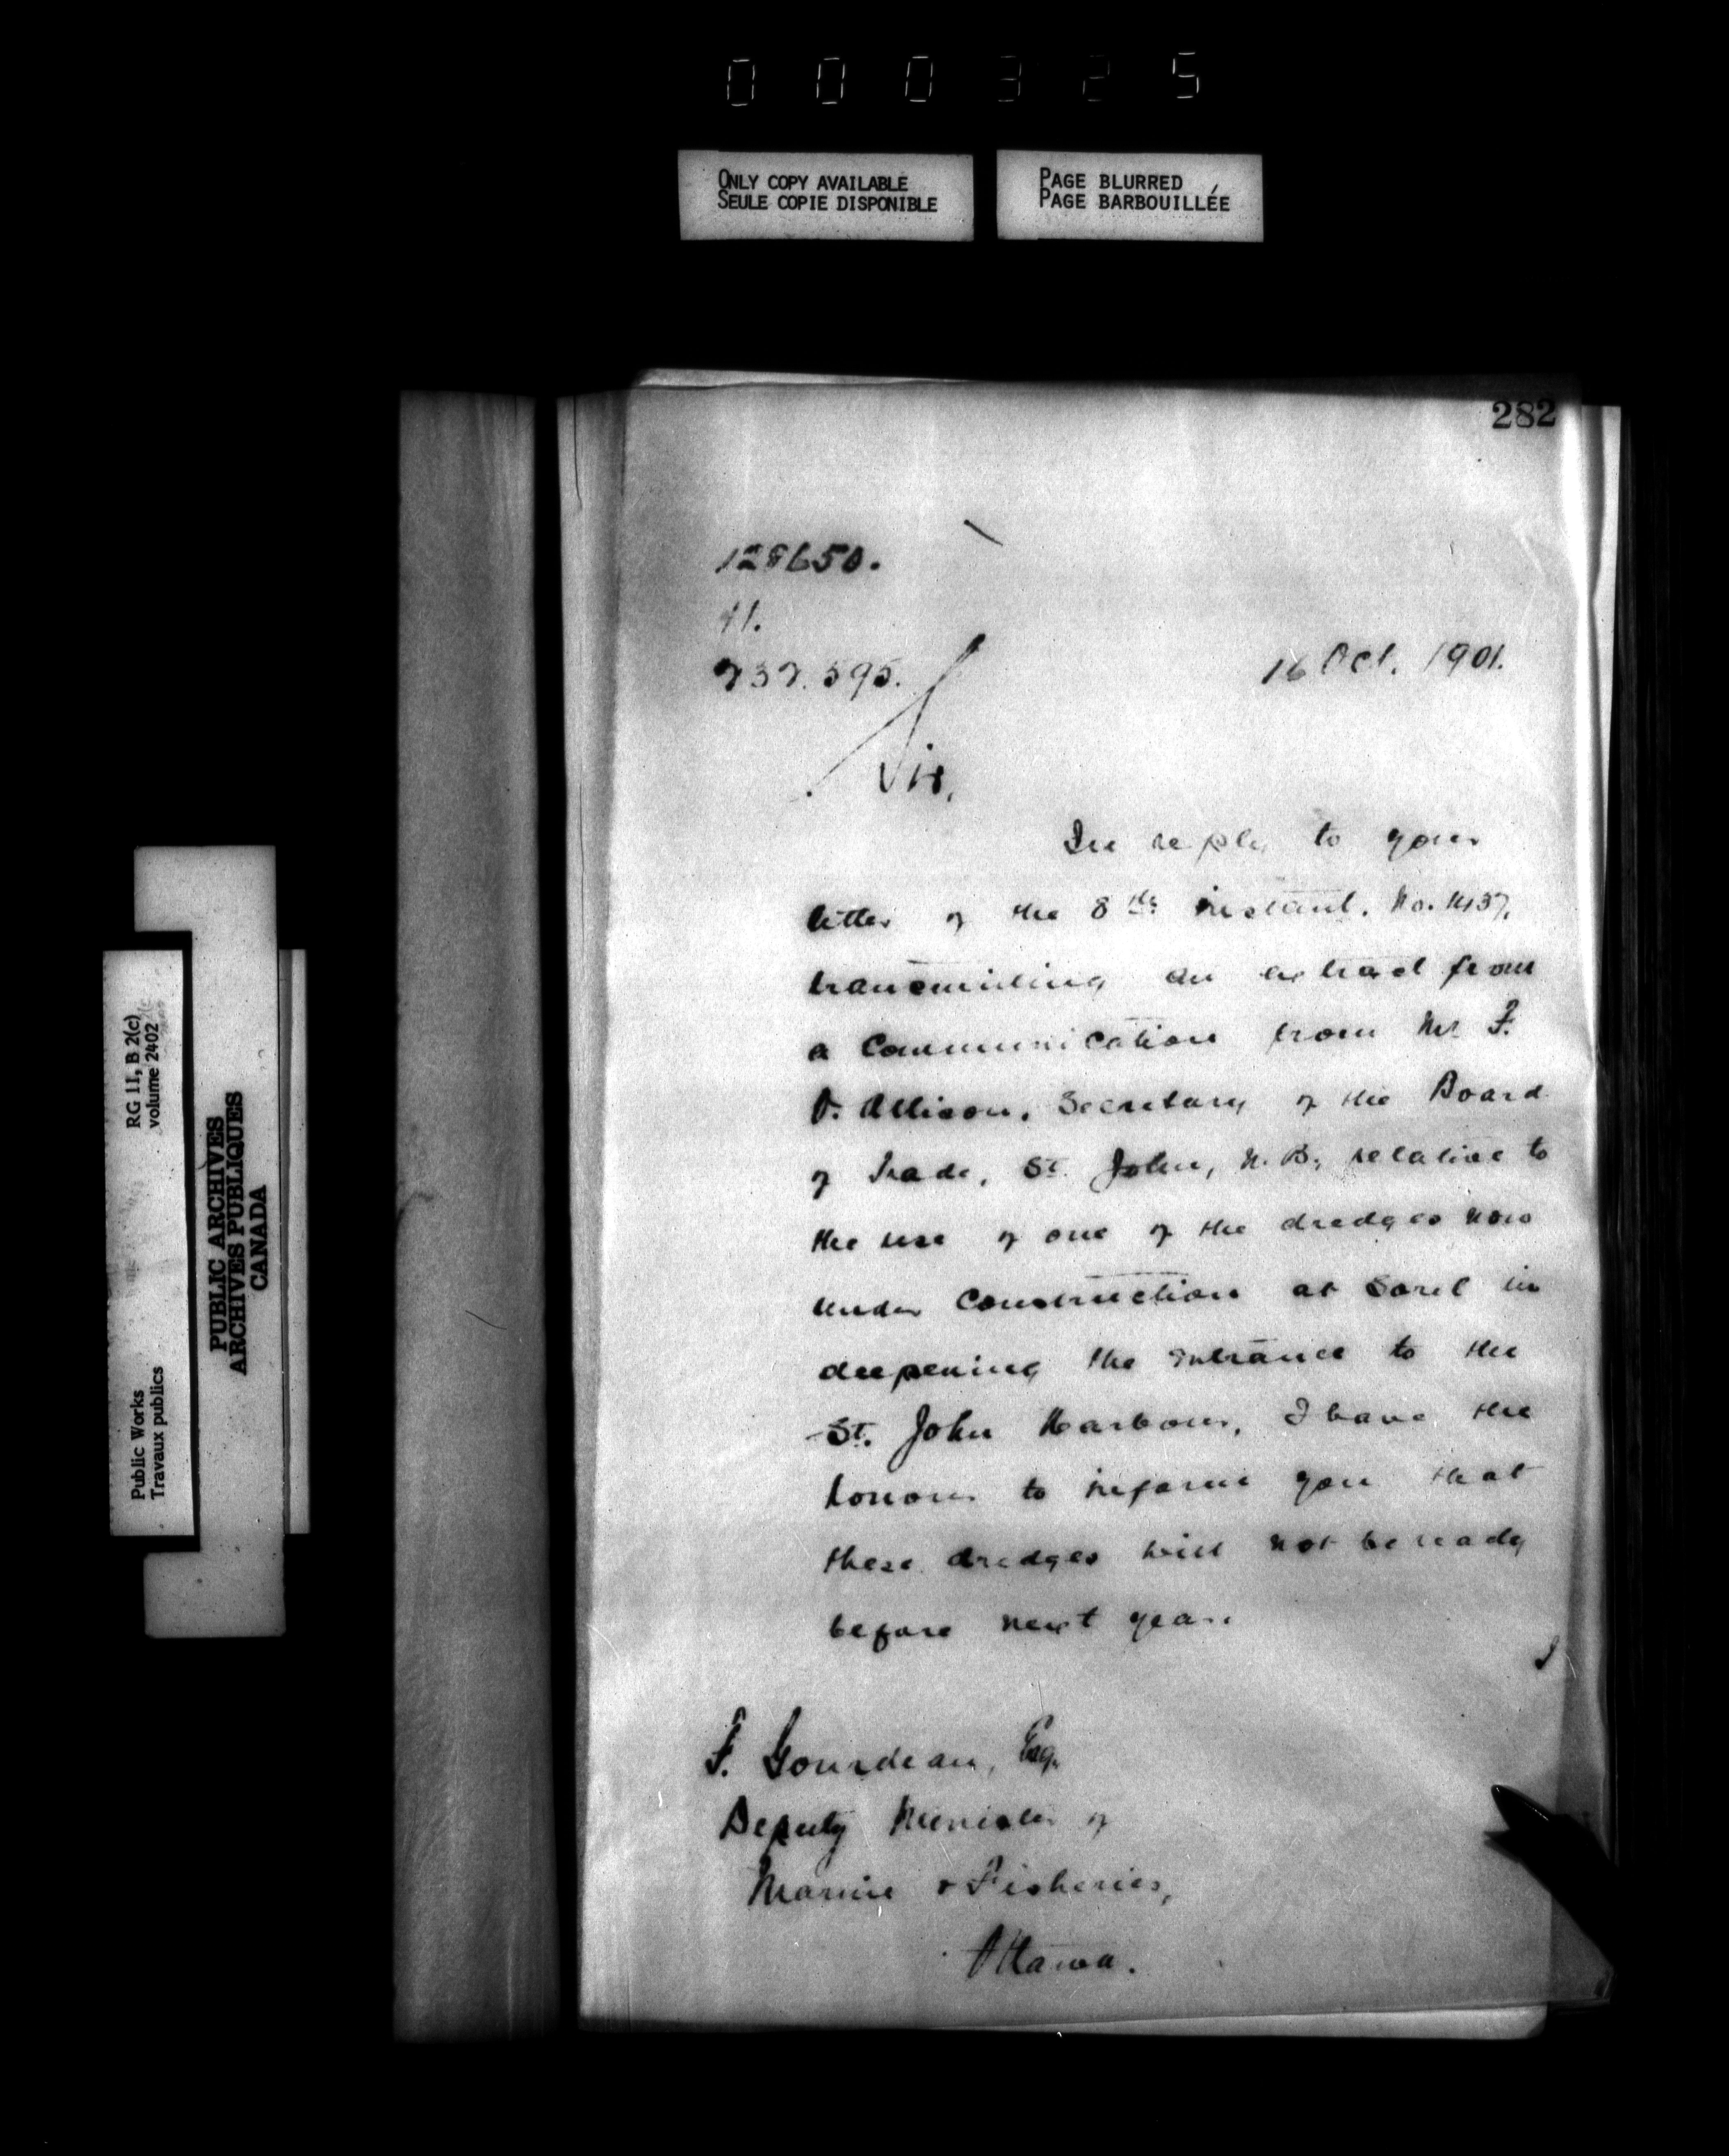 000325
ONLY COPY AVAILABLE
SEULE COPIE DISPONIBLE
PAGE BLURRED
PAGE BARBOUILLÉE
RG 11, B 2(c)
volume 2402
Public Works
Travaux publics
PUBLIC ARCHIVES
ARCHIVES PUBLIQUES
CANADA
282
128650.
11.
232.595.
16 Oct. 1901.
Sir,
In reply to your
letter of the 8th instant. No.
transmitting an extract from
a Communication from Mr F.
O. Allison, Secretary of the Board
of Trade, St. John, N.B., relative to
the use of one of the dredges now
under Construction at Sorel in
deepening the entrance to the
St. John Harbour, I have the
honour to inform you that
these dredges will not be ready
before next year.
I
F. Gourdeau, Esq.
Deputy Minister of
Marine & Fisheries,
Ottawa.